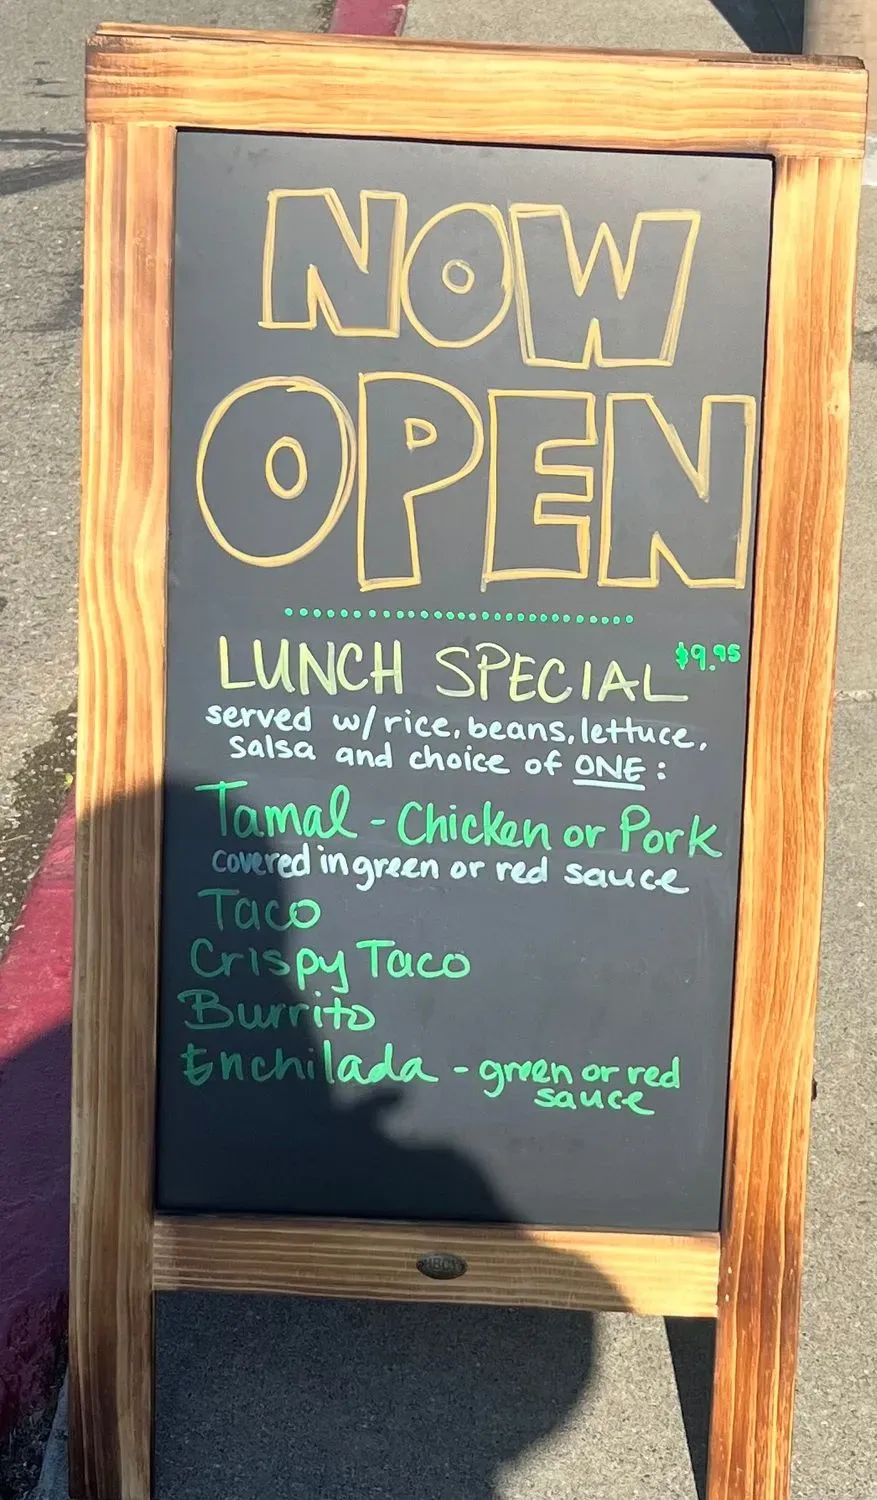 NOW
OPEN
LUNCH SPECIAL $9.95
served w/rice, beans, lettuce,
salsa and choice of ONE:
Tamal - Chicken or Pork
covered in green or red sauce
Taco
Crispy Taco
Burrito
Enchilada - green or red
sauce